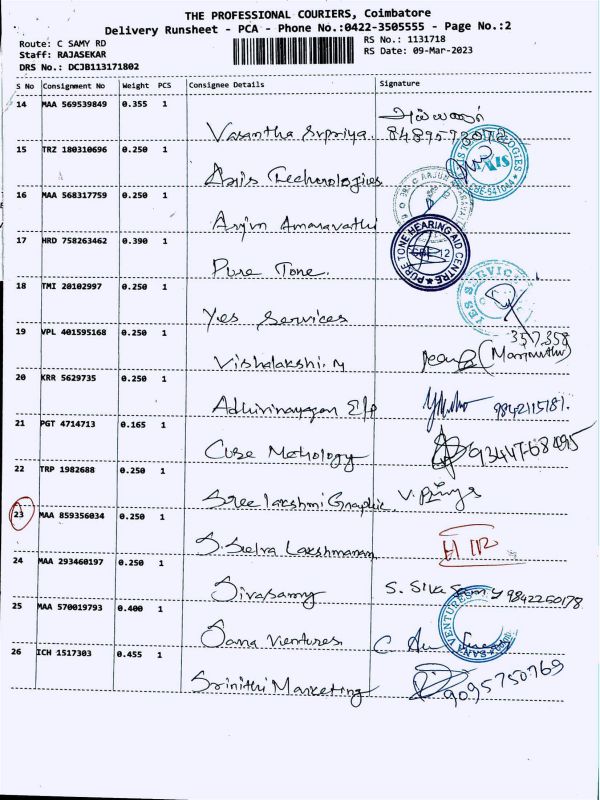 THE PROFESSIONAL COURIERS, Coimbatore
Delivery Runsheet - PCA - Phone No.:0422-3505555 - Page No.:2
Route: C SAMY RD
RS No.: 1131718
Staff: RAJASEKAR
RS Date: 09-Mar-2023
DRS No.: DCJB113171802
S No Consignment No Weight PCS Consignee Details Signature
14 MAA 569539849 0.355 1
Vasantha Srpriya.
15 TRZ 180310696 0.250 1
Axis Technologies
AXIS
CBE-641044
16 MAA 568317759 0.250 1
Arjun Amaravathi
17 HRD 758263462 0.390 1
Pure Tone.
PURE TONE HEARING AID CENTRE
CBE-12
18 TMI 20102997 0.250 1
Yes Services
YES SERVICE
19 VPL 401595168 0.250 1
Vishalakshi. M
357358
(Marimuthu)
20 KRR 5629735 0.250 1
Adhivinayagan E/P
9842115181.
21 PGT 4714713 0.165 1
Cube Methology
9344768495
22 TRP 1982688 0.250 1
Sree lakshmi Graphic.
23 MAA 859356034 0.250 1
S. Selva Lakshmanan
24 MAA 293460197 0.250 1
Sivasamy S. Siva Samy 9842250178
25 MAA 570019793 0.400 1
Sana Ventures
SANA VENTURES
26 ICH 1517303 0.455 1
Srinithi Marketing 9095750769